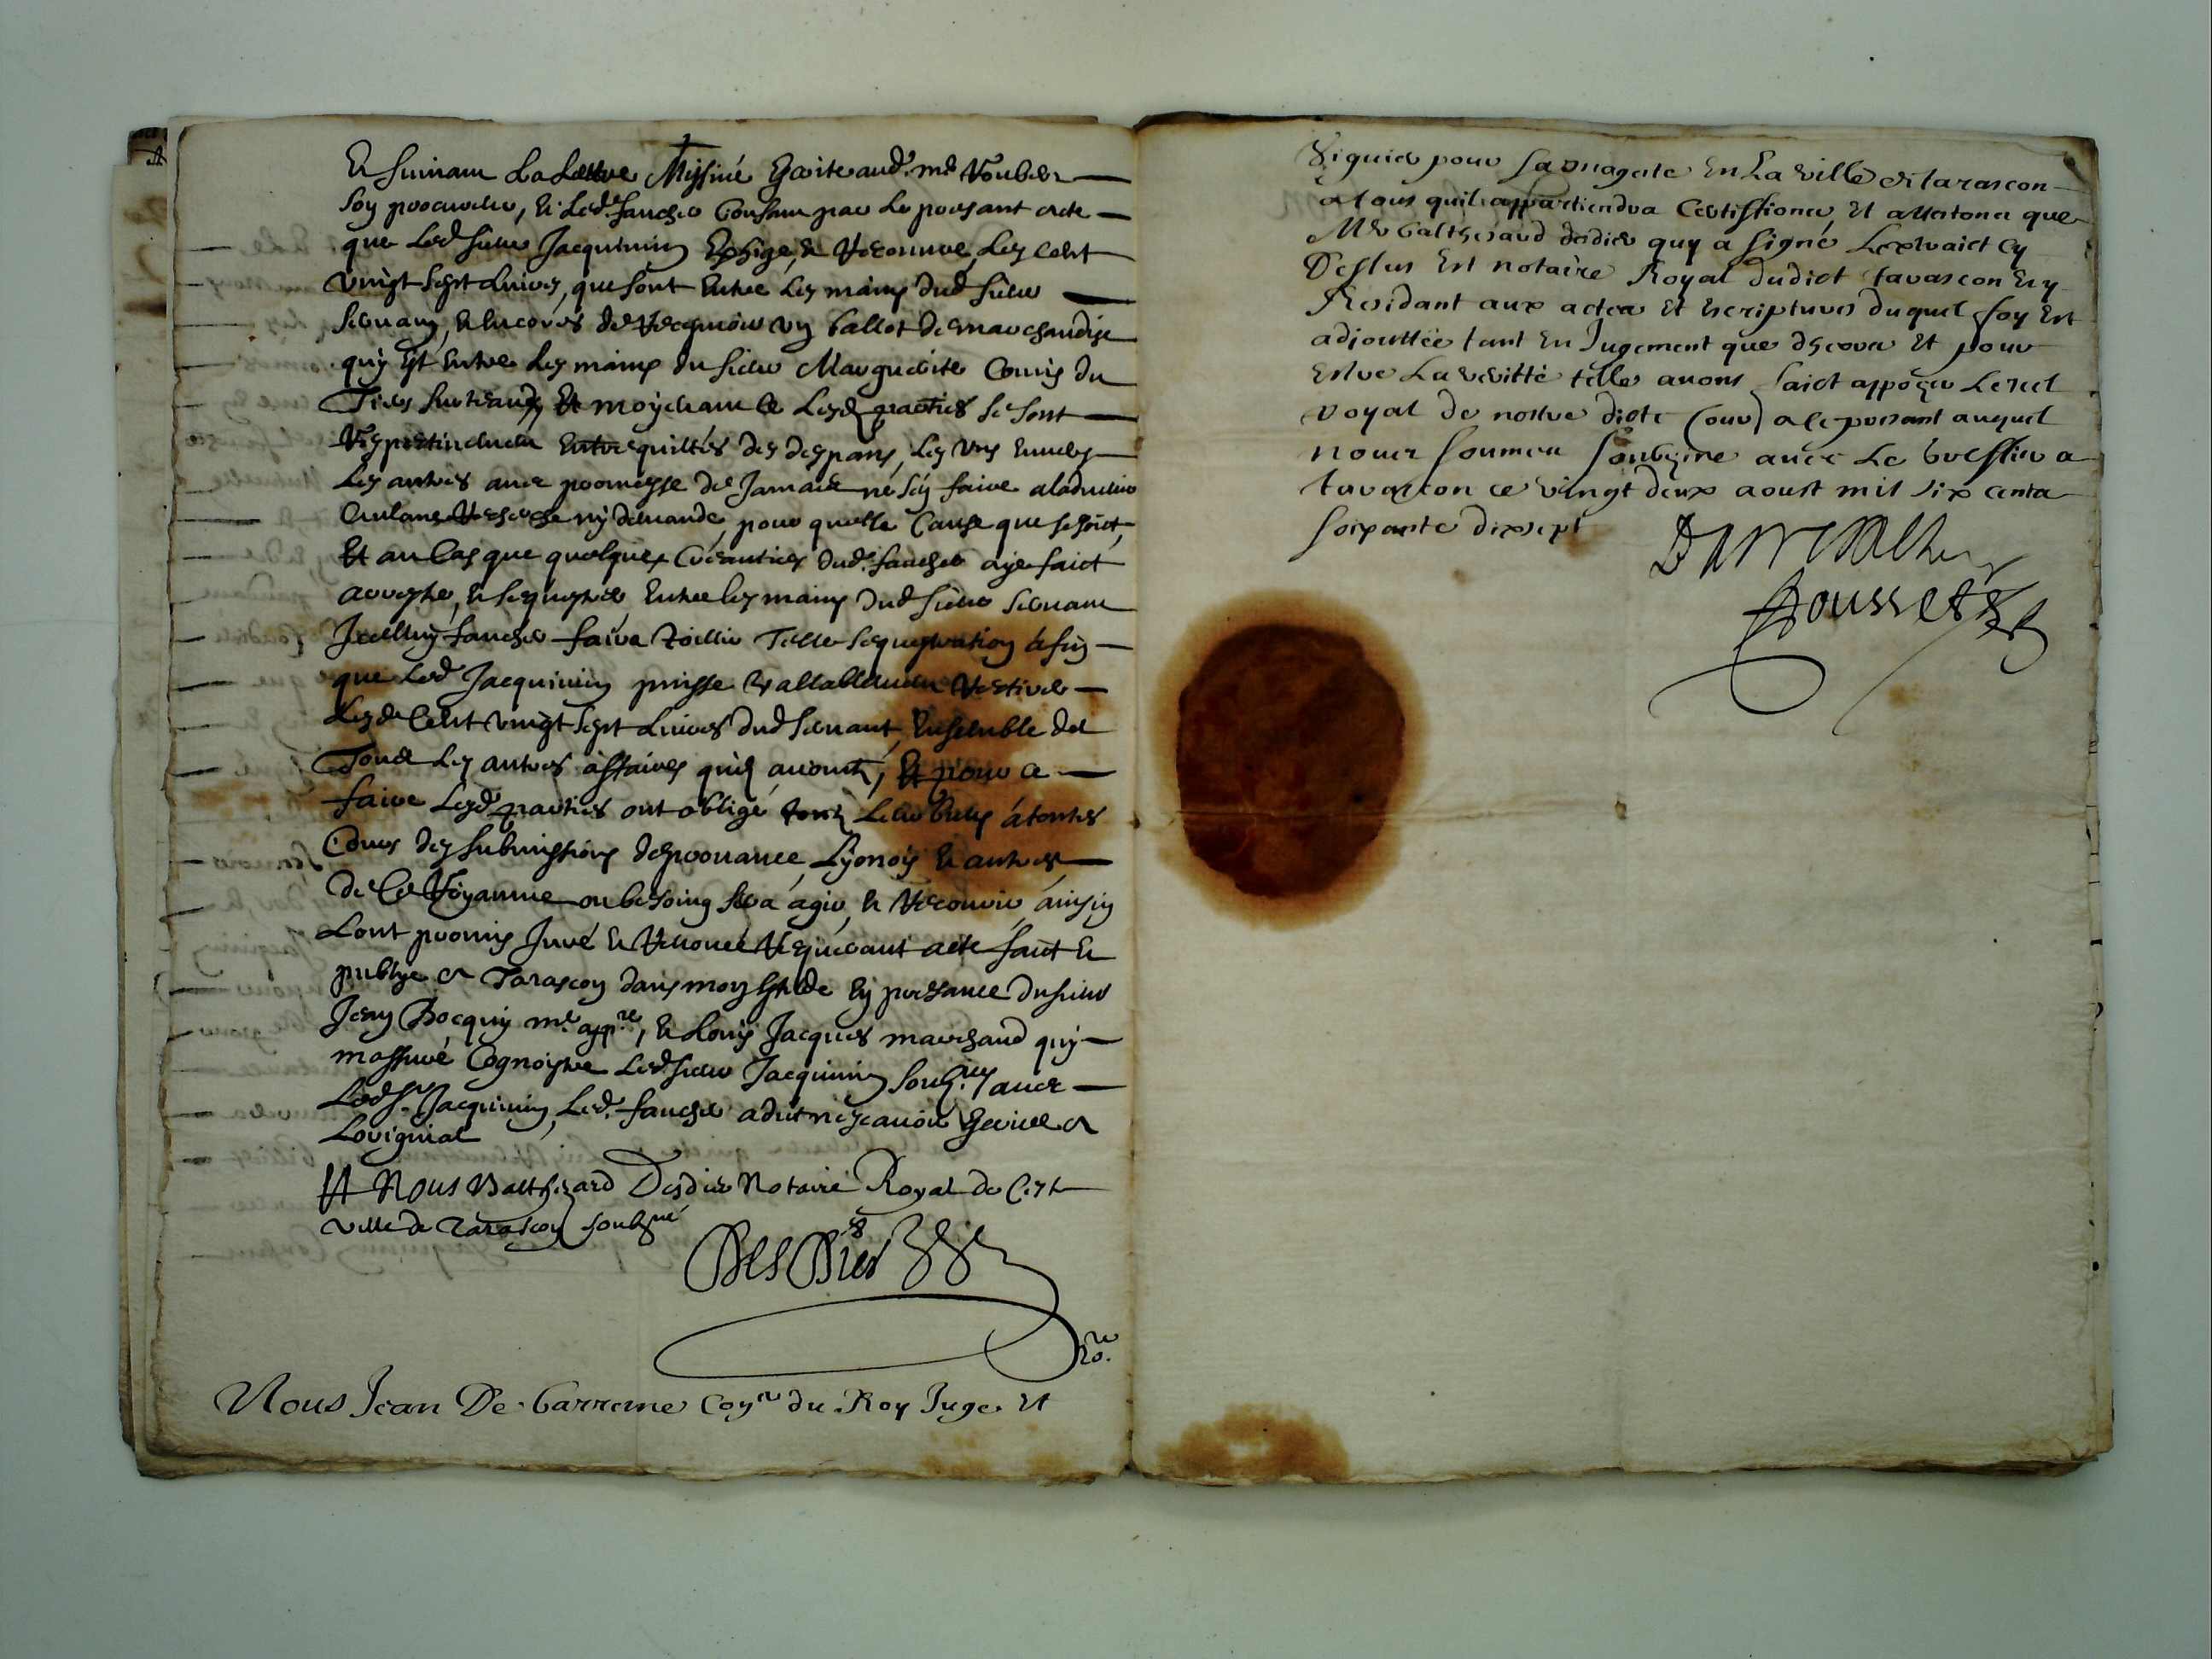 Et suivant La Lettre Missive Escrite aud. me Voubert
son procureur, Et Led. fauchier Consant par Le present acte
que Led sieur Jacquimin Exhige, & Recouvre Les cent
vingt sept Livres, que sont Entre Les mains dud sieur
servant, & Encores de Recepvoir un ballot de marchandise
quy Est Entre Les mains du sieur Marguerite Comis du
Et moyenant Ce Lesd parties se sont
Respectivement Entrequittés des despans, Les uns Envers
Les autres avec promesse de Jamais ne s'en faire aladvenir
Aulcune Recherche ny demande, pour quelle Cause que se soict,
Et au Cas que quelques Creantiers dud. fauchier aye faict
arrester, & sequestrer Entre les mains dud sieur servant
Icelluy fauchier faira tollir Telle sequestration afin
que Led Jacquimin puisse Vallablement Retirer
Lesd Cent vingt sept Livres dud servant, Ensemble de
Toutes Les autres affaires quils avoint, Et pour ce
faire Lesd parties ont obligé touts Leurs biens a toutes
Cours des submissions de provance, Lyonois & autres
de Ce Royaume ou besoing sera agir, & Recourir ainsin
Lont promis Juré & Renoncé Requerant acte faict &
publye a Tarascon dans mon Estude En presance du sieur
Jean Bocquin me appre, & Louis Jacques marchand quy
massuré Cognoistre Led. sieur Jacquimin soubsnes avec
Led Sr Jacquimin, Led. fauchier a dict ne scavoir Escrire a
Loriginal
Et Nous Balthezard Desdier Notaire Royal de Ceste
ville de Tarascon soubsné
DesDier
No.re
Nous Jean De Barreme Coner du Roy Juge Et
Viguier pour sa magesté En La ville de tarascon
a tous quil appartiendra Certiffions Et attestons que
Me balthesard dedier quy a signé Lextraict cy
Dessus Est notaire Royal dudict tarascon En
Residant aux actes Et Escriptures duquel foy Est
adjouttée tant En Jugement que dehors Et pour
Estre La veritté telle avons faict apposer Le scel
royal de nostre dicte Cour a le present auquel
nous sommes soubsigné avec Le Greffier a
tarascon ce vingt deux aoust mil six cents
soixante dixsept
Barreme
Rousset